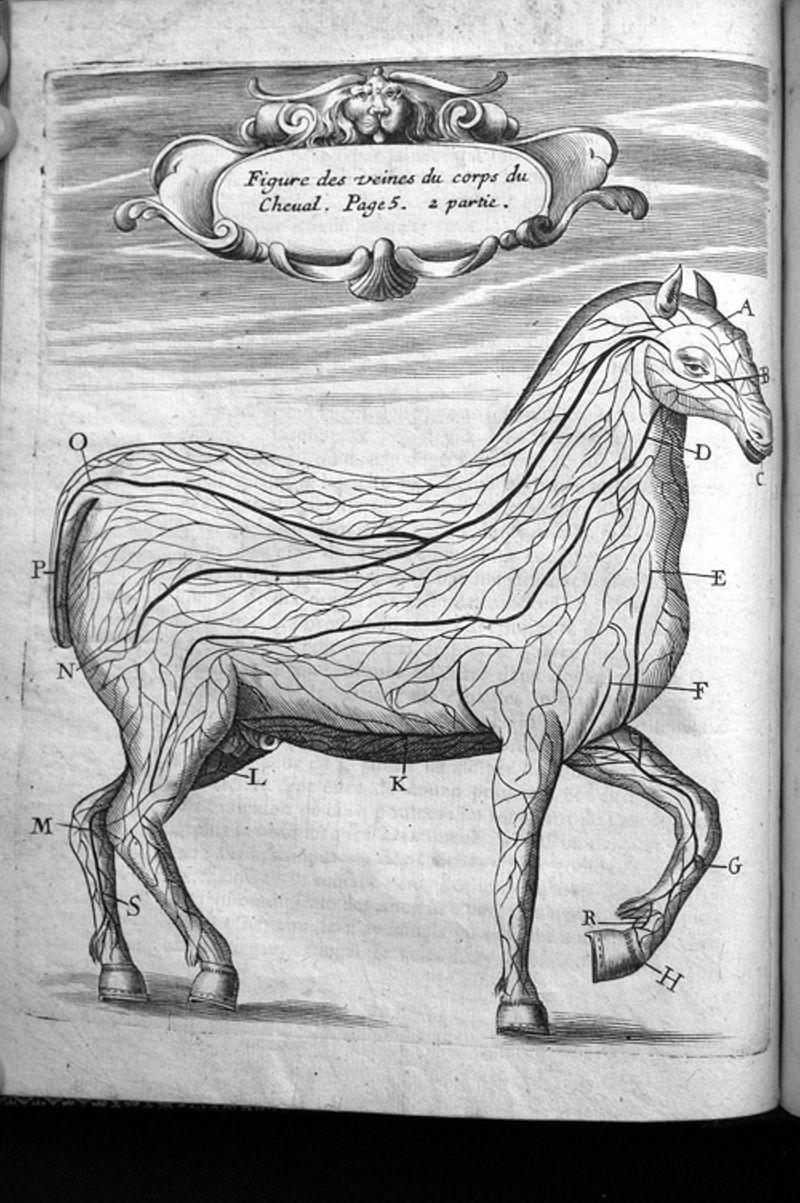 Figure des veines du corps du
Cheual. Page 5. 2 partie.
A
B
C
D
O
P
E
N
F
L
K
M
G
S
R
H